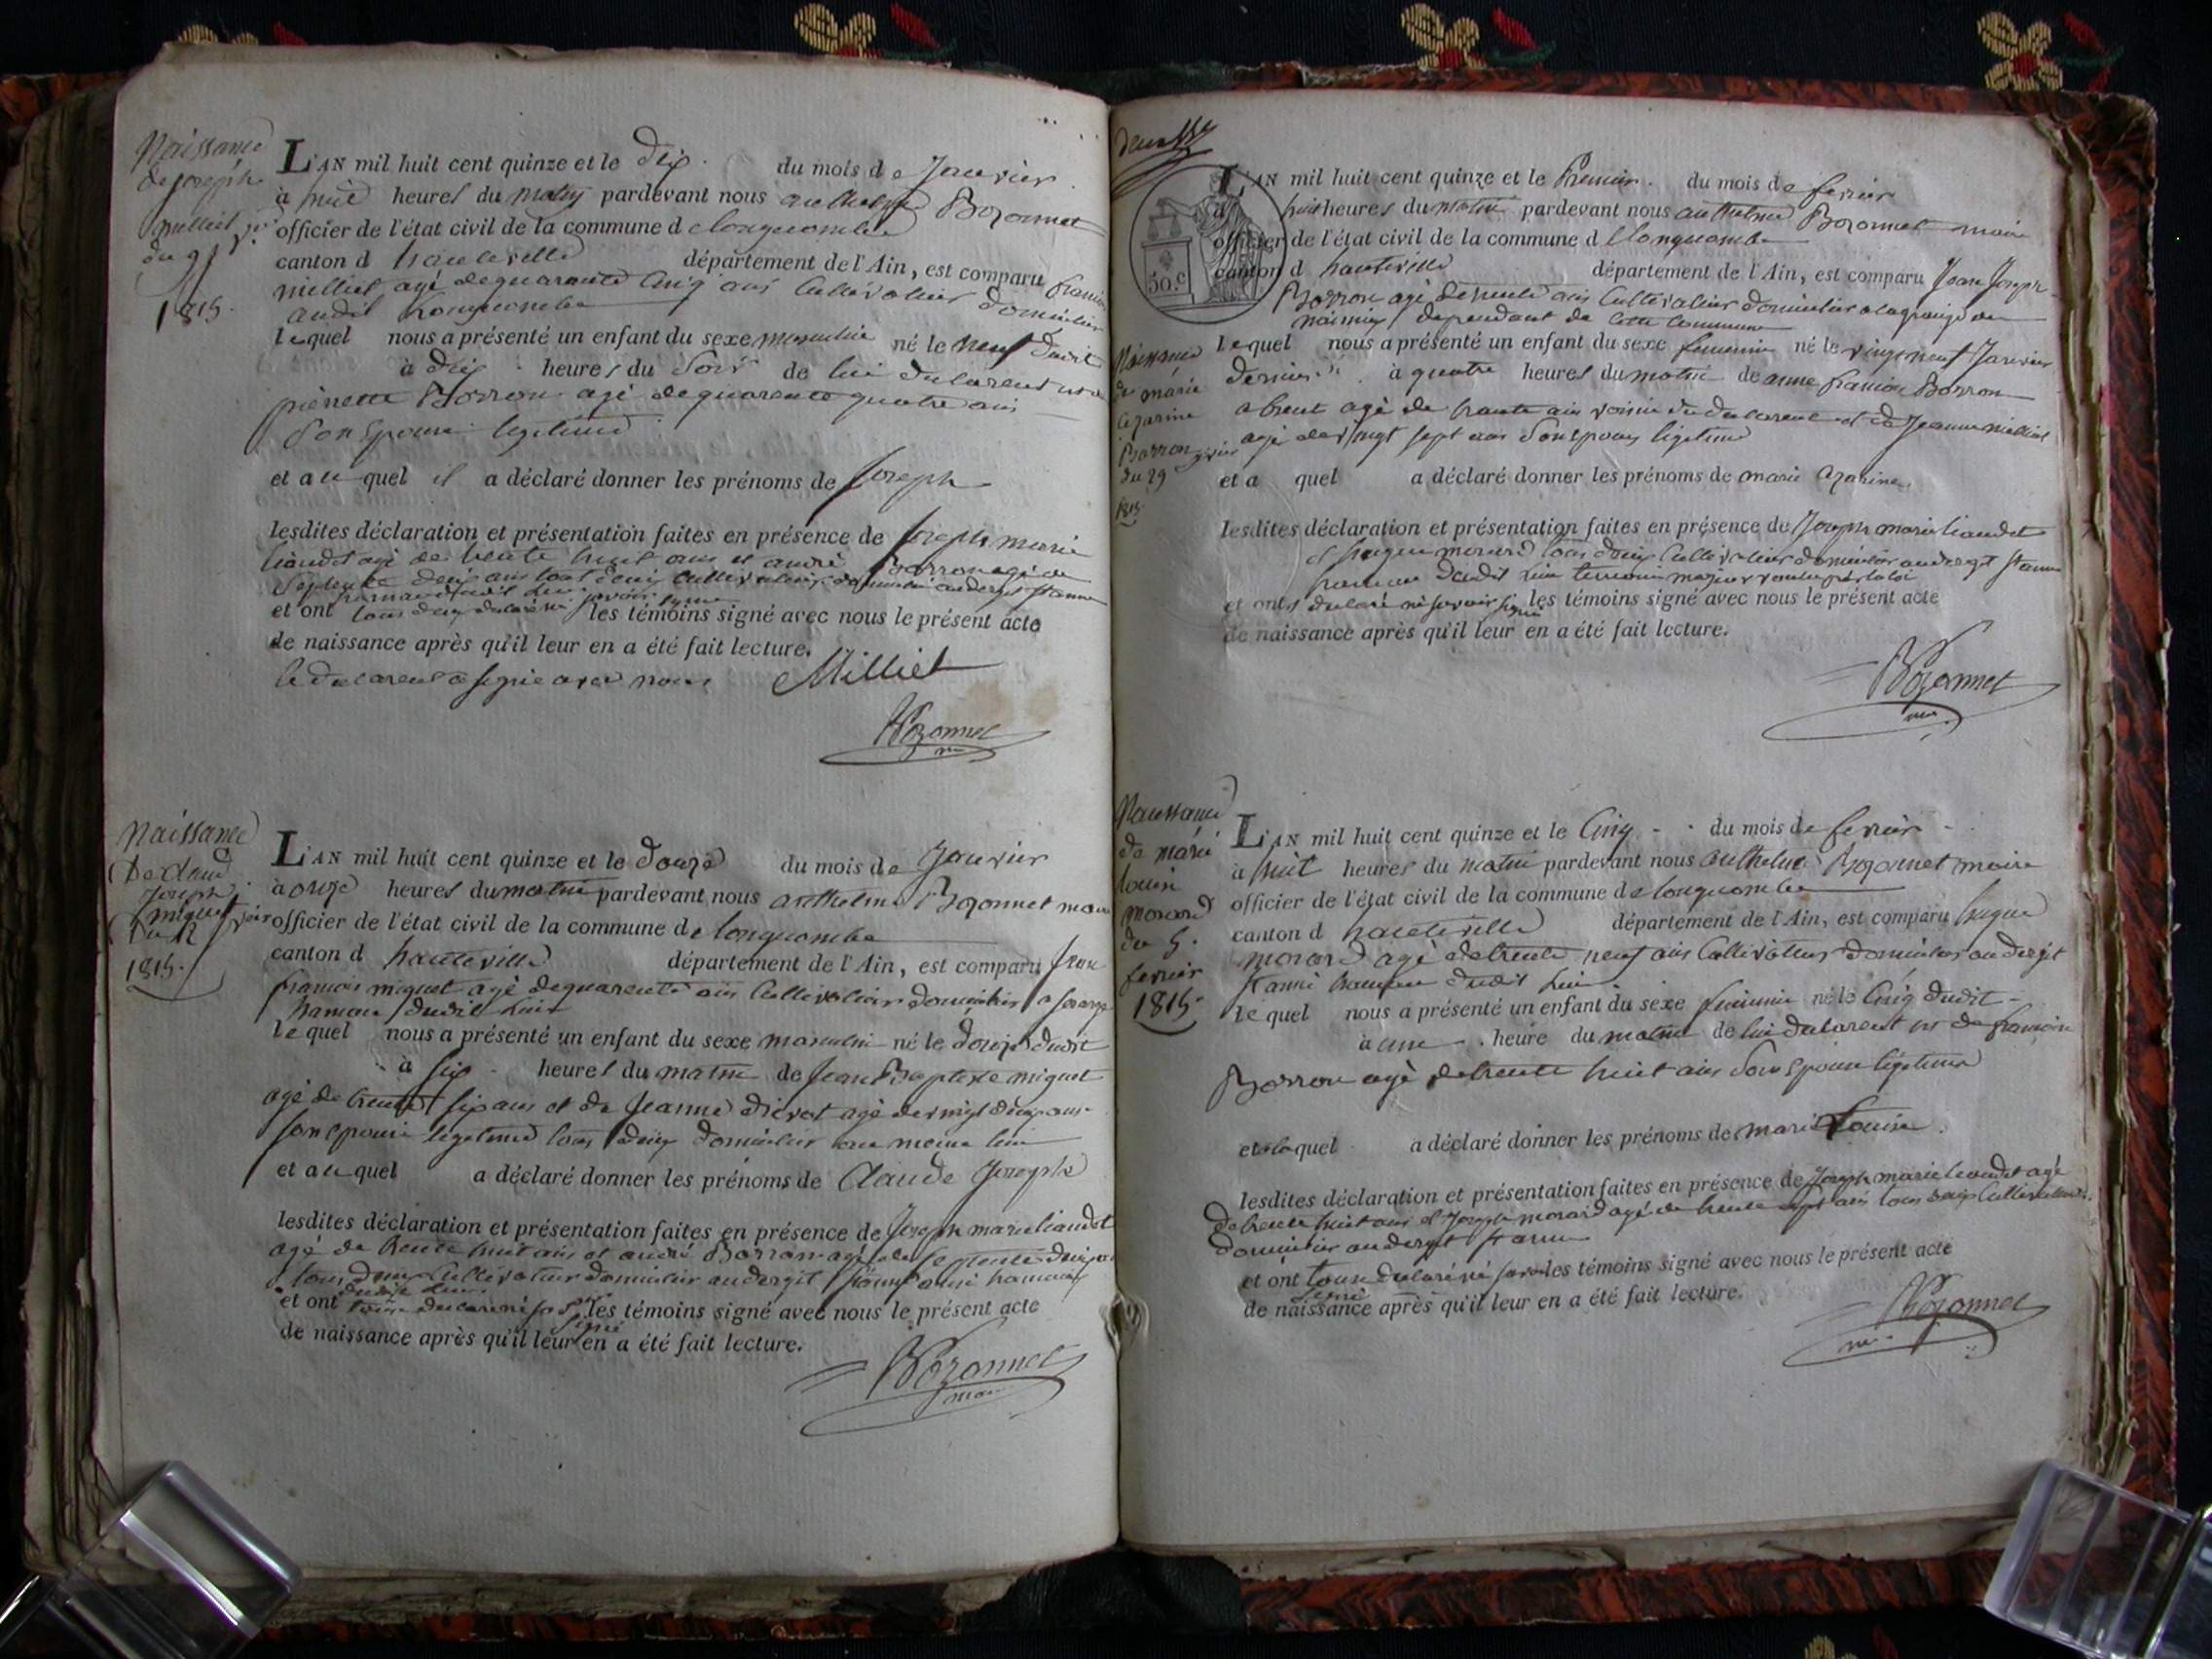 Naissance
de joseph
milliet
du 9
1815.
L'AN mil huit cent quinze et le dix du mois de Janvier
à huit heures du matin pardevant nous anthelme Bozonnet
officier de l'état civil de la commune de longecombe
canton d hauteville département de l'Ain, est comparu
milliet agé de quarante cinq ans Cultivateur domicilié
audit Longecombe
lequel nous a présenté un enfant du sexe masculin né le neuf dudit
à dix heures du soir de lui declarent et de
pierrette Borron agé de quarente quatre ans
son epouse legitime
et au quel il a déclaré donner les prénoms de Joseph
lesdites déclaration et présentation faites en présence de Joseph marie
liaudet agé de trente huit ans et andré Borron agé de
septente deux ans tout deux cultivateurs domicilié
et ont tous deux declaré savoir les témoins signé avec nous le présent acte
de naissance après qu'il leur en a été fait lecture.
le declarent a signé avec nous Milliet
Bozonnet
Naissance
De claude
Joseph
miguet
Du 12
1815.
L'AN mil huit cent quinze et le douze du mois de Janvier
à onze heures du matin pardevant nous anthelme Bozonnet maire
officier de l'état civil de la commune de longecombe
canton d hauteville département de l'Ain, est comparu
francois miguet agé de quarente ans Cultivateur domicilié a
hameau dudit lieu
lequel nous a présenté un enfant du sexe masculin né le douze dudit
à six heures du matin de Jean Baptiste miguet
agé de trente six ans et de Jeanne agé de vingt deux ans
son epouse legitime tous deux domicilier au meme lieu
et au quel a déclaré donner les prénoms de Claude Joseph
lesdites déclaration et présentation faites en présence de Joseph marie liaudet
agé de trente huit ans et andré Borron agé de septente deux ans
tous deux Cultivateur domicilier hameau
dudit lieu
et ont declaré les témoins signé avec nous le présent acte
de naissance après qu'il leur en a été fait lecture.
Bozonnet
maire
50.c
L'AN mil huit cent quinze et le Premier du mois de fevrier
à huit heures du matin pardevant nous anthelme Bozonnet maire
officier de l'état civil de la commune d Longecombe
canton d hauteville département de l'Ain, est comparu Jean Joseph
Borron agé de trente ans Cultivateur domicilier a
dependant de cette Commune
Naissance
de marie
Azarine
Borron
du 29
1815
Lequel nous a présenté un enfant du sexe feminin né le vingt neuf Janvier
dernier à quatre heures du matin de anne francois Borron
absent agé de trente ans voisin du declarent et de Jeanne milliet
agé de vingt sept ans son epouse legitime
et a quel a déclaré donner les prénoms de marie azarine
lesdites déclaration et présentation faites en présence de Joseph marie liaudet
et hugue morard tous deux Cultivateur domicilier
hameau dudit lieu temoin majeur voulu par la loi
et ont declaré ne savoir signé les témoins signé avec nous le présent acte
de naissance après qu'il leur en a été fait lecture.
Bozonnet
Naissance
de marie
louise
morard
du 5.
fevrier
1815
L'AN mil huit cent quinze et le Cinq du mois de fevrier
à huit heures du matin pardevant nous anthelme Bozonnet maire
officier de l'état civil de la commune de longecombe
canton d hauteville département de l'Ain, est comparu hugue
morard agé de trente neuf ans Cultivateur domicilier
hameau dudit lieu
lequel nous a présenté un enfant du sexe feminin né le Cinq dudit
à une heure du matin de lui declarent et de francoise
Borron agé de trente huit ans son epouse légitime
et a laquel a déclaré donner les prénoms de marie Louise
lesdites déclaration et présentation faites en présence de Joseph marie liaudet agé
de trente huit ans et Joseph morard agé de trente sept ans tous deux Cultivateurs
domicilier
et ont declaré les témoins signé avec nous le présent acte
de naissance après qu'il leur en a été fait lecture.
Bozonnet